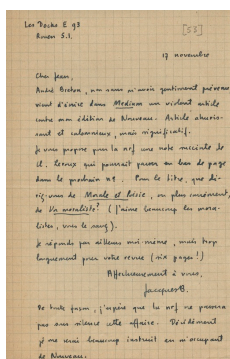 Les Decks E 93
Rouen S.I.
[53]
17 novembre
Cher Jean,
André Breton, sans m'avoir gentiment prévenu
vient d'écrire dans Medium un violent article
contre mon édition de Nouveau. Article ahuris-
sant et calomnieux, mais significatif.
Je vous propose pour la nrf une note succincte de
qui pourrait passer en bas de page
dans le prochain n°. Pour le titre, que di-
riez-vous de Morale et Poésie, ou plus carrément,
de Un moraliste? (J'aime beaucoup les mora-
listes, vous le savez).
Je réponds par ailleurs moi-même, mais trop
longuement pour votre revue (six pages!)
Affectueusement à vous,
Jacques B.
De toute façon, j'espère que la nrf ne passera
pas sous silence cette affaire. Décidément
je me serai beaucoup instruit en m'occupant
de Nouveau.